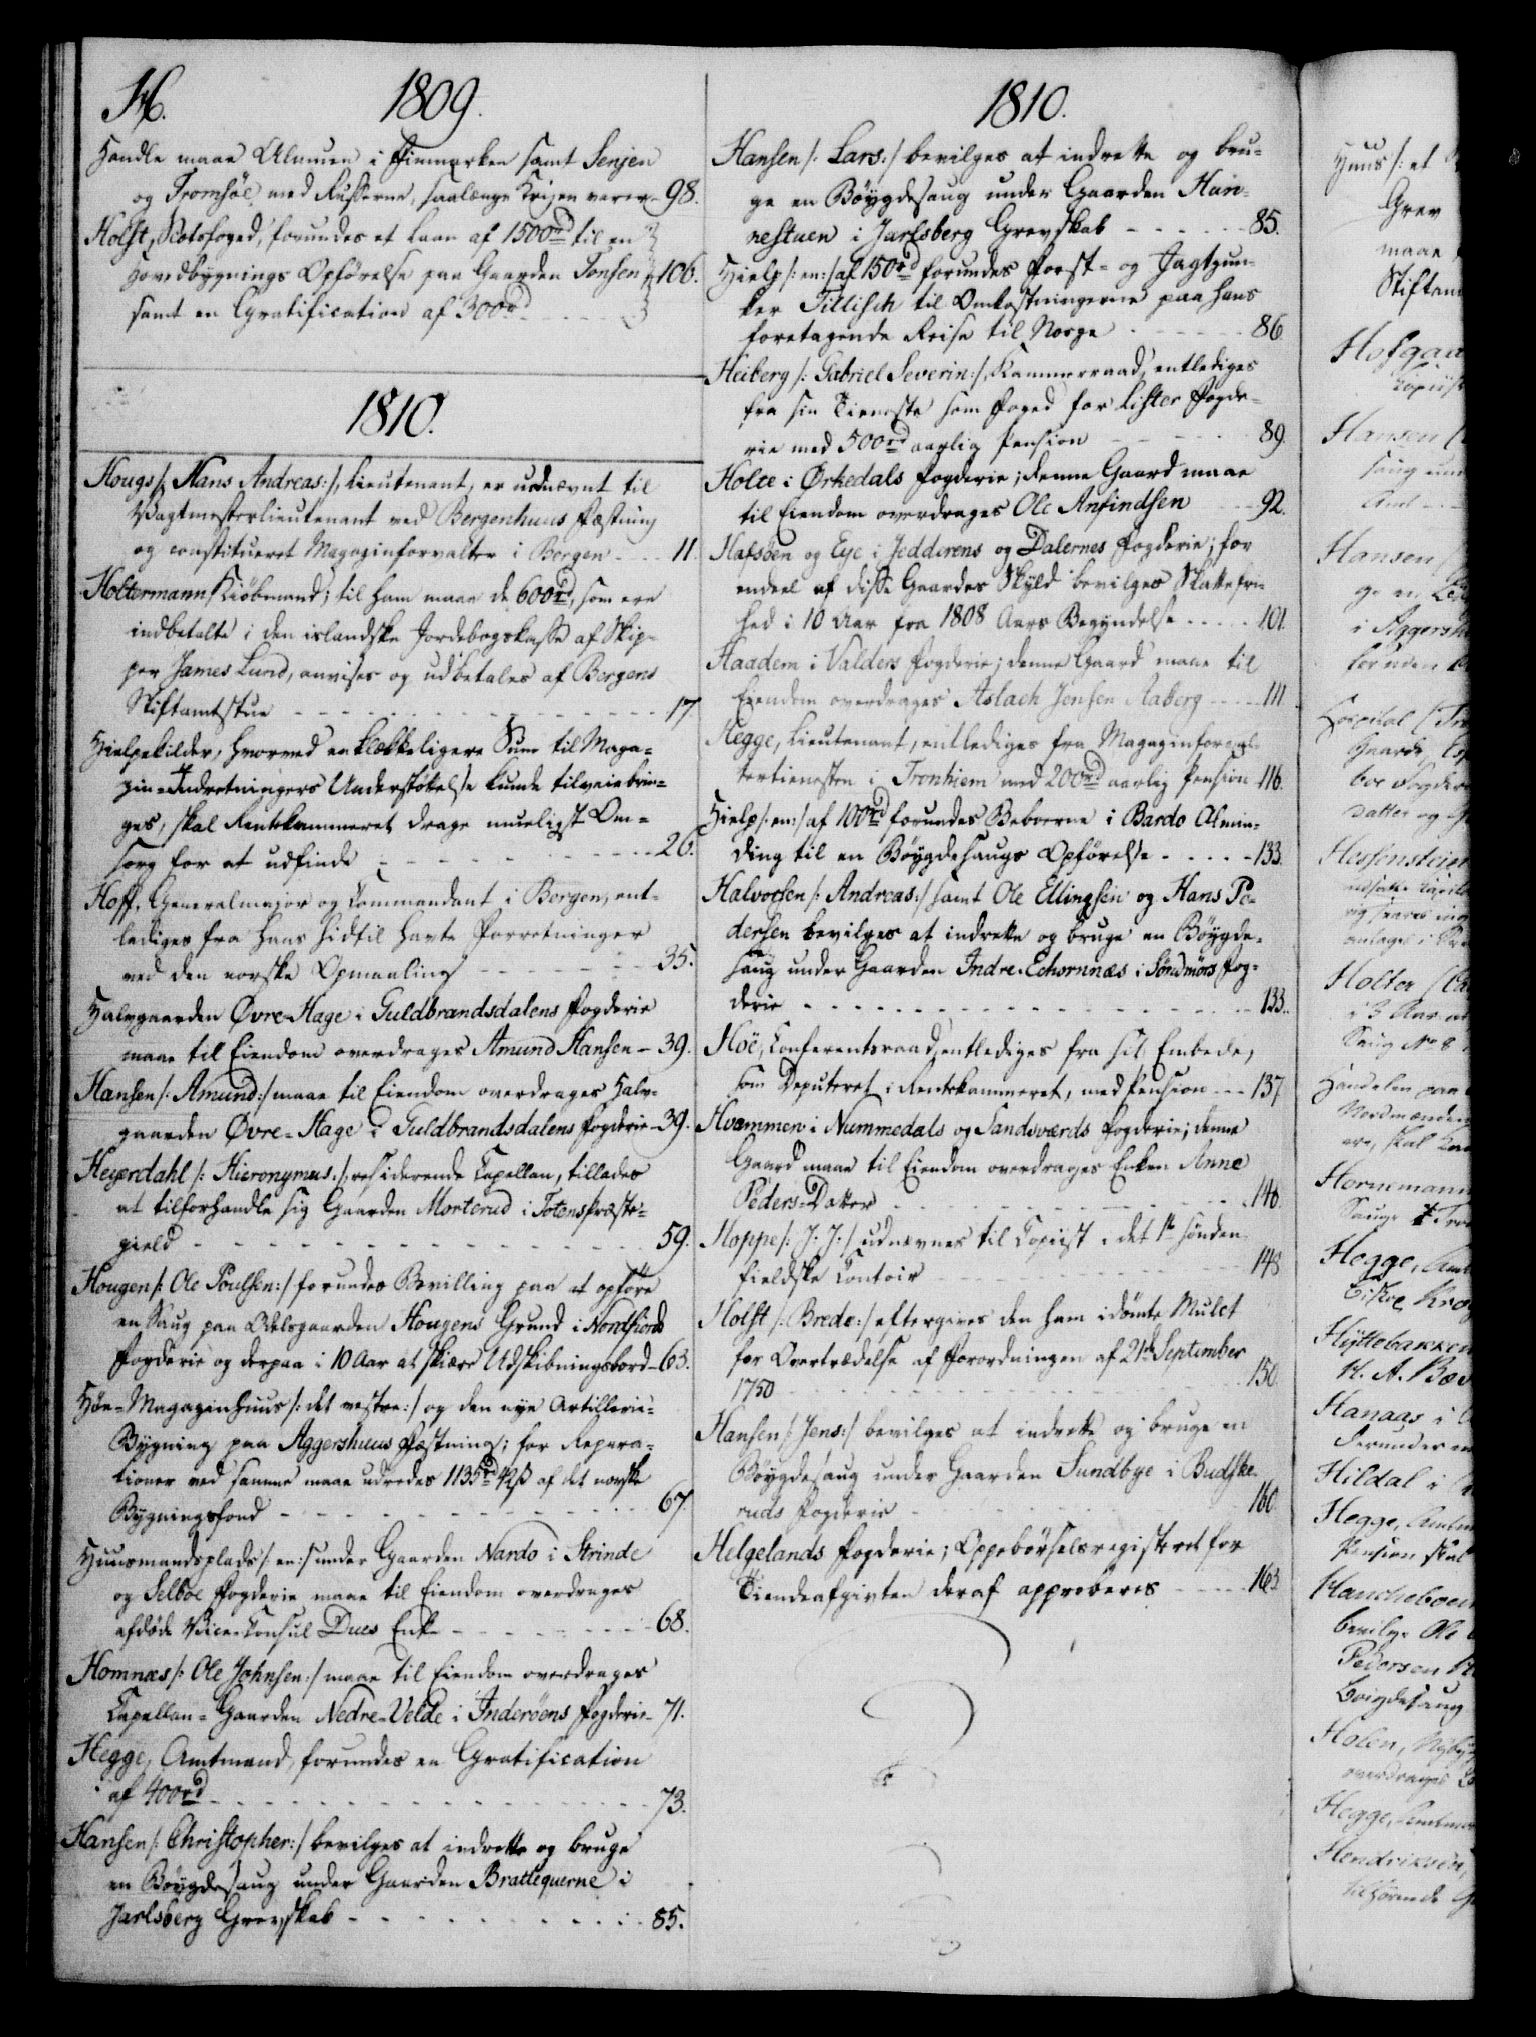 H.
1809.
Handle maae Almuen i Finmarken samt Senjen
og Tromsöe med Russerne, saalænge Krigen varer - 98.
Holst, Slotsfoged, forundes et Laan af 1500rd til en
Hovedbygnings Opförelse paa Gaarden Tonsen,
samt en Gratification af 300rd - 106.
1810.
Hougs /: Hans Andreas:/, Lieutenant, er udnævnt til
Vagtmesterlieutenant ved Bergenhuus Fæstning
og constitueret Magazinforvalter i Bergen - - - 11.
Holtermann, Kiöbmand; til ham maae de 600rd, som ere
indbetalte i den islandske Jordebogskasse af Skip-
per James Lund, anvises og udbetales af Bergens
Stiftamtstue - - - 17.
Hielpekilder, hvorved en tilstrækkeligere Sum til Maga-
zin-Indretningers Understøttelse kunde tilveiebrin-
ges, skal Rentekammeret drage mueligst Om-
sorg for at udfinde - - - 26.
Hoff, Generalmajor og Commandant i Bergen, ent-
lediges fra hans hidtil havte Forretninger
ved den norske Opmaaling - - - 35.
Halvgaarden Øvre-Hage i Guldbrandsdalens Fogderie
maae til Eiendom overdrages Amund Hansen - 39.
Hansen /: Amund:/ maae til Eiendom overdrages Halv-
gaarden Øvre-Hage i Guldbrandsdalens Fogderie - 39.
Heyerdahl /: Hieronymus:/, residerende Capellan, tillades
at tilforhandle sig Gaarden Morterud i Totens Præste-
gield - - - 59.
Hougen /: Ole Poulsen:/ forundes Bevilling paa at opföre
en Saug paa Odelsgaarden Hougens Grund i Nordfiords
Fogderie og derpaa i 10 Aar at skiære Udskibningsbord - 63.
Höe-Magazinhuus /: det vestre:/ og den nye Artillerie-
Bygning paa Aggershuus Fæstning; for Repara-
tioner ved samme maae udredes 1135rd 42ß af det norske
Bygningsfond - - - 67.
Huusmandsplads /: en:/ under Gaarden Nardo i Strinde
og Selboe Fogderie maae til Eiendom overdrages
afdöde Vice-Consul Dues Enke - - - 68.
Homnæs /: Ole Johnsen:/ maae til Eiendom overdrages
Capellan-Gaarden Nedre-Velde i Inderöens Fogderie - 71.
Hegge, Amtmand, forundes en Gratification
af 400rd - - - 73.
Hansen /: Christopher:/ bevilges at indrette og bruge
en Böygdesaug under Gaarden Brattequerne i
Jarlsberg Grevskab - - - 85.
1810.
Hansen /: Lars:/ bevilges at indrette og bru-
ge en Böygdesaug under Gaarden Han-
nestuen i Jarlsberg Grevskab - - - 85.
Hielp /: en:/ af 150rd forundes Forst- og Jagtjun-
ker Tillisch til Omkostningerne paa hans
foretagende Reise til Norge - - - 86
Heiberg /: Gabriel Severin:/, Kammerraad, entlediges
fra sin Tieneste som Foged for Lister Fogde-
rie med 500rd aarlig Pension - - - 89.
Holte i Ørkedals Fogderie; denne Gaard maae
til Eiendom overdrages Ole Anfindsen - - 92.
Hafsöen og Eye i Jedderens og Dalernes Fogderie; for
endeel af disse Gaardes Skyld bevilges Skattefri-
hed i 10 Aar fra 1808 Aars Begyndelse - - - 101.
Haadem i Valders Fogderie; denne Gaard maae til
Eiendom overdrages Aslach Jensen Aaberg - - - 111
Hegge, Lieutenant, entlediges fra Magazinforval-
tertienesten i Tronhiem med 200rd aarlig Pension - 116.
Hielp /: en:/ af 100rd forundes Beboerne i Bardo Almin-
ding til en Böygdesaugs Opförelse - - - 133.
Halvorsen /: Andreas:/ samt Ole Ellingsen og Hans Pe-
dersen bevilges at indrette og bruge en Böygde-
saug under Gaarden Indre-Echornnæs i Söndmörs Fog-
derie - - - 133.
Höe, Conferentsraad, entlediges fra sit Embede,
som Deputeret i Rentekammeret, med Pension - - - 137
Hvammen i Nummedals og Sandsværds Fogderie; denne
Gaard maae til Eiendom overdrages Enken Anne
Peders-Datter - - - 146.
Hoppe /: J. J.:/ udnævnes til Copiist i det 1te sönden-
fieldske Contoir - - - 148
Holst /: Brede:/ eftergives den ham idömte Mulct
for Overtrædelse af Forordningen af 21de September
1750 - - - 150.
Hansen /: Jens:/ bevilges at indrette og bruge en
Böygdesaug under Gaarden Sundbye i Budske-
ruds Fogderie - - - 160.
Helgelands Fogderie; Oppebörselsregisteret for
Tiendeafgivten deraf approberes - - - 163
Huus /: et
Grev
maae
Stiftam
Hofgaa
Copiist
Hansen
saug und
Amt
Hansen
i Aggersh
Hospital
Gaarde
Hessenstein
Holter
i 3 Aar
Saug No 8
Handelen paa
Nordmænden
Hornemann
Hegge, Amt
Hyttebakken
H. A.
Hanaas i
Hildal i
Hegge, Amtm
Pension skal
Pedersen
boigdesaug
Holen,
overdrages
Hegge, Amtma